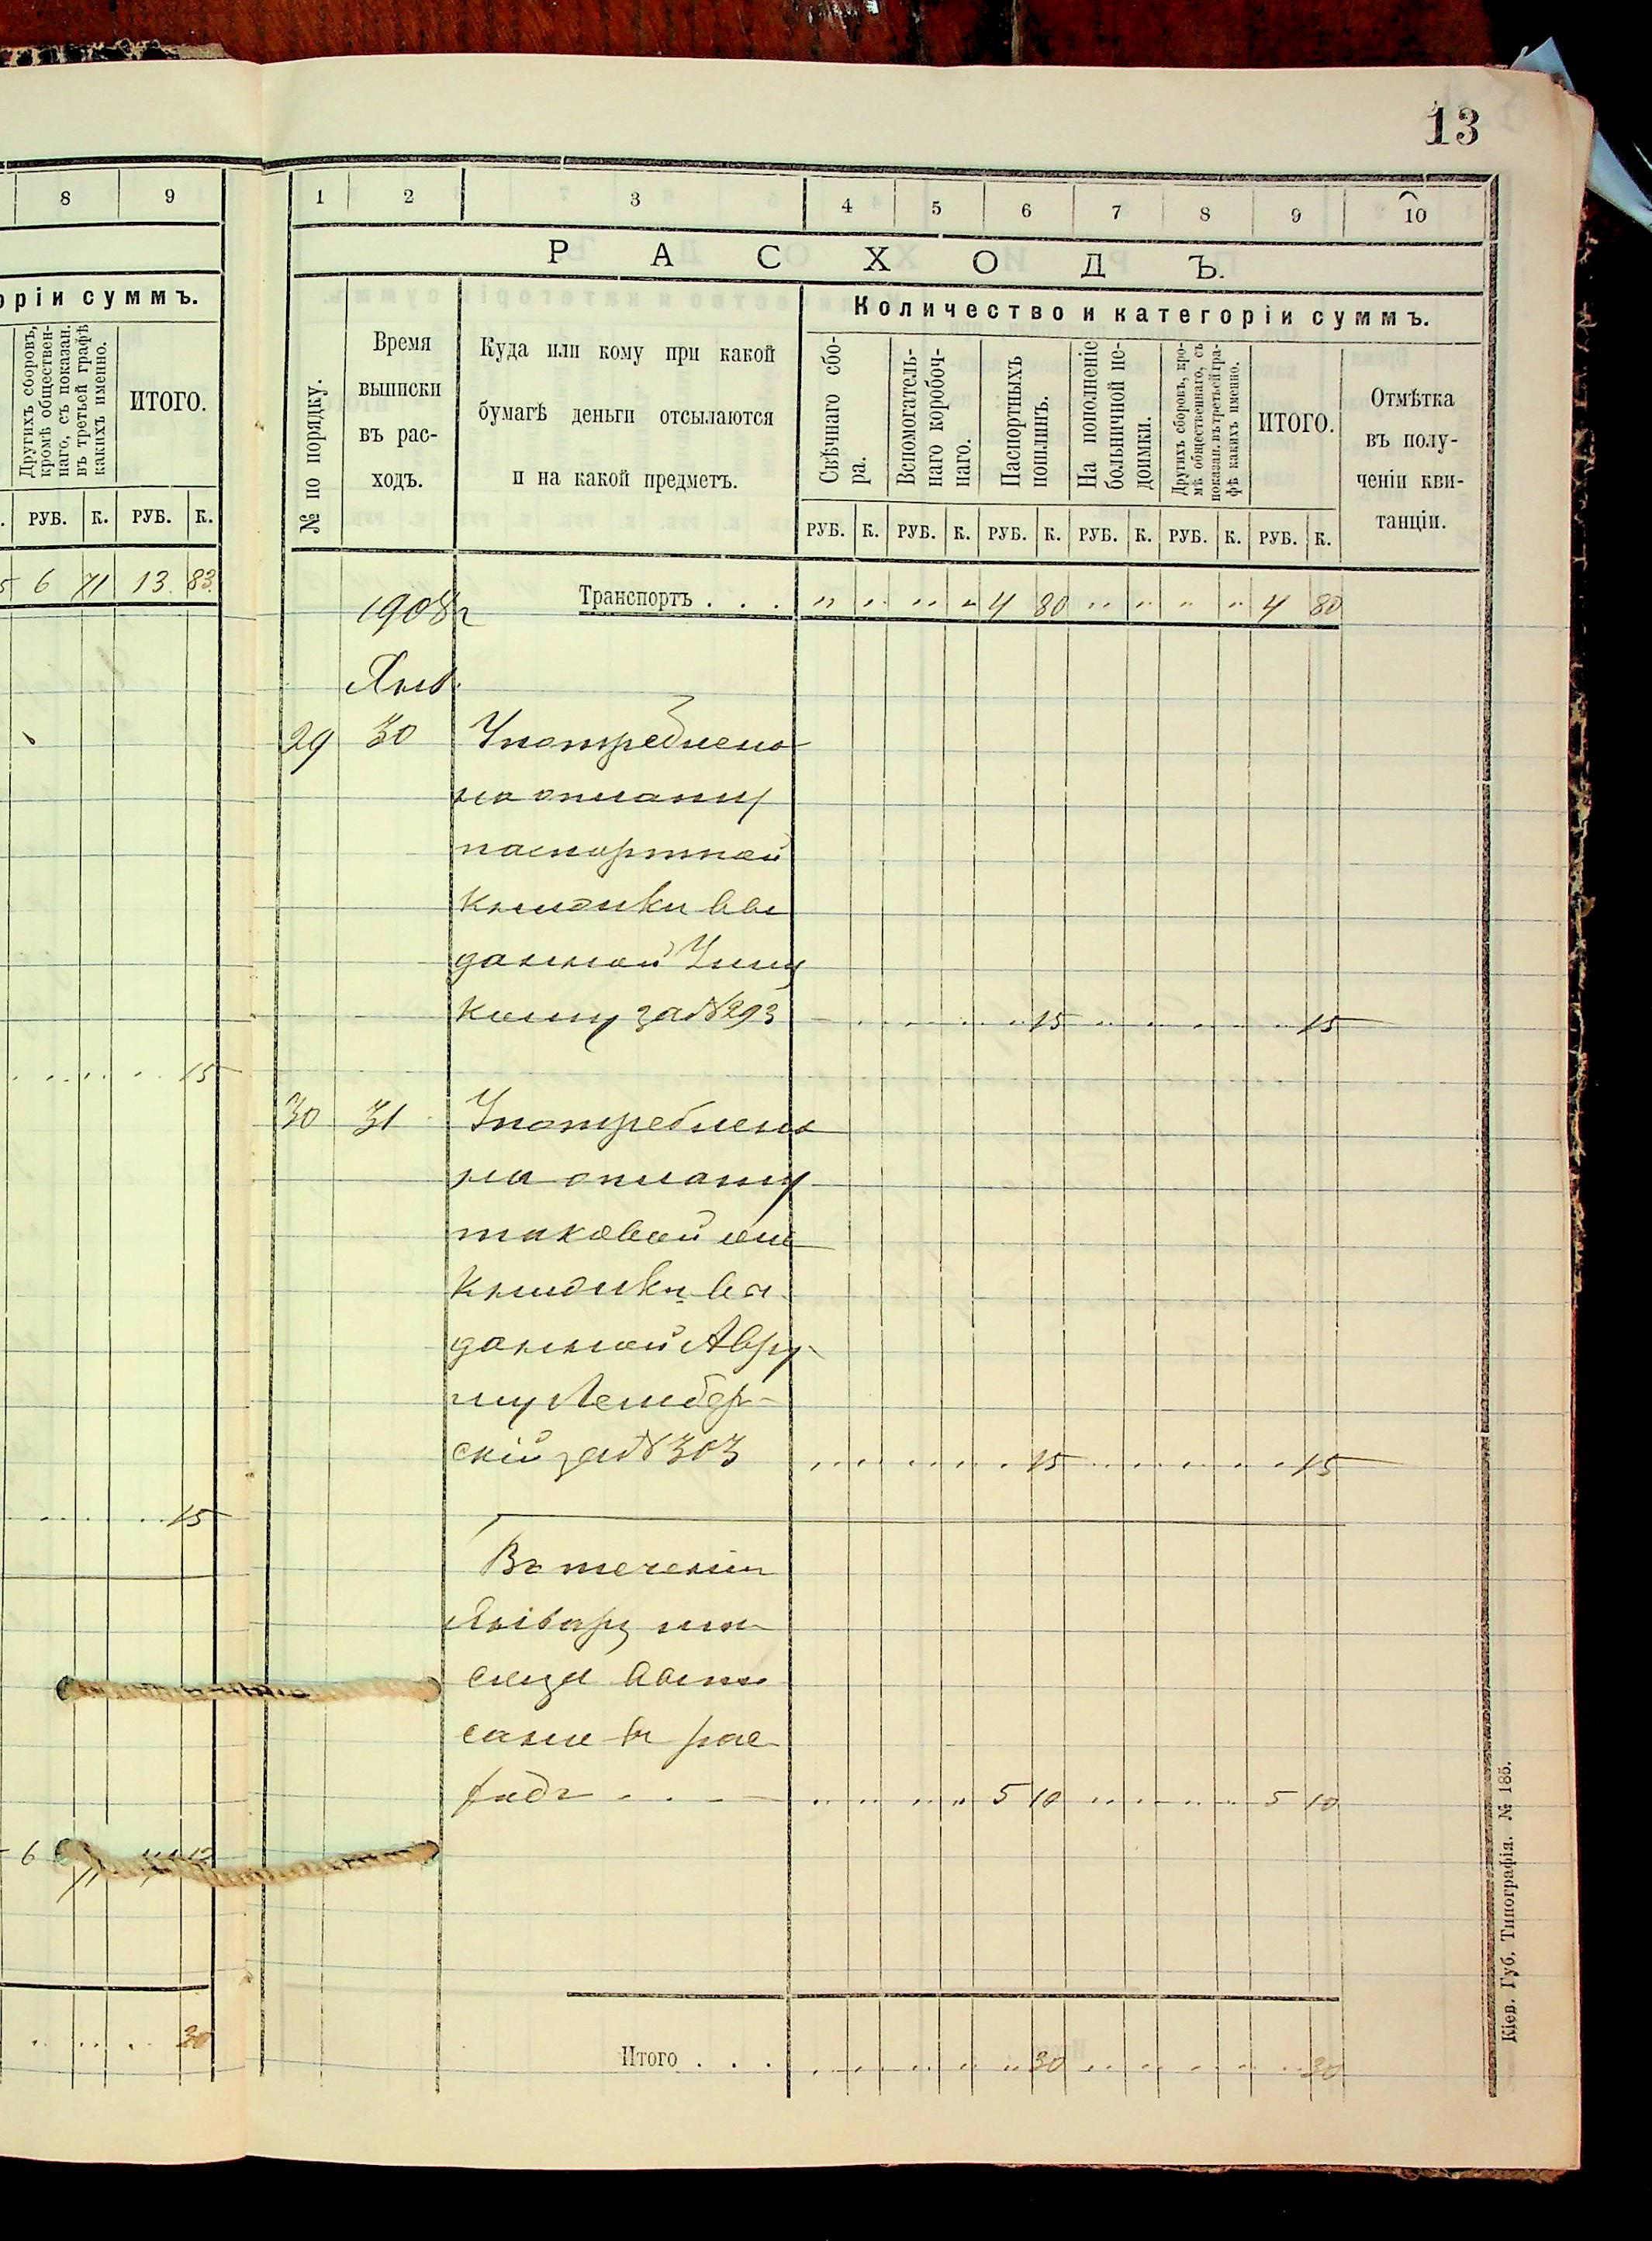 13
8 9
оріи суммъ.
Другихъ сборовъ,
кромѣ обществен-
наго, съ показан.
въ третьей графѣ
какихъ именно.
ИТОГО.
РУБ. К. РУБ. К.
5 6 71 13 83
15
15
6 71
30
1 2 3 4 5 6 7 8 9 10
РАСХОДЪ.
Количество и категоріи суммъ.
№ по порядку.
Время
выписки
въ рас-
ходъ.
Куда или кому при какой
бумагѣ деньги отсылаются
и на какой предметъ.
Свѣчнаго сбо-
ра.
Вспомогатель-
наго коробоч-
наго.
Паспортныхъ
пошлинъ.
На пополненіе
больничной не-
доимки.
Другихъ сборовъ, кро-
мѣ общественнаго, съ
показан. въ третьей гра-
фѣ какихъ именно.
ИТОГО.
Отмѣтка
въ полу-
ченіи кви-
танціи.
РУБ. К. РУБ. К. РУБ. К. РУБ. К. РУБ. К. РУБ. К.
1908 г
Транспортъ . . . " " " " 4 80 " " " " 4 80
Янв.
29 30 Употреблено
на оплату
паспортной
книжки вы
данной
за № 293 15 15
30 31 Употреблено
на оплату
таковой же
книжки вы
данной Авру-
му Лембер-
скій за № 303 15 15
Въ теченіи
Январѣ мѣ
сяца выпи
сано въ рас
ходъ . . . 5 10 5 10
Итого . . . 30 30
Кіев. Губ. Типографія. № 185.